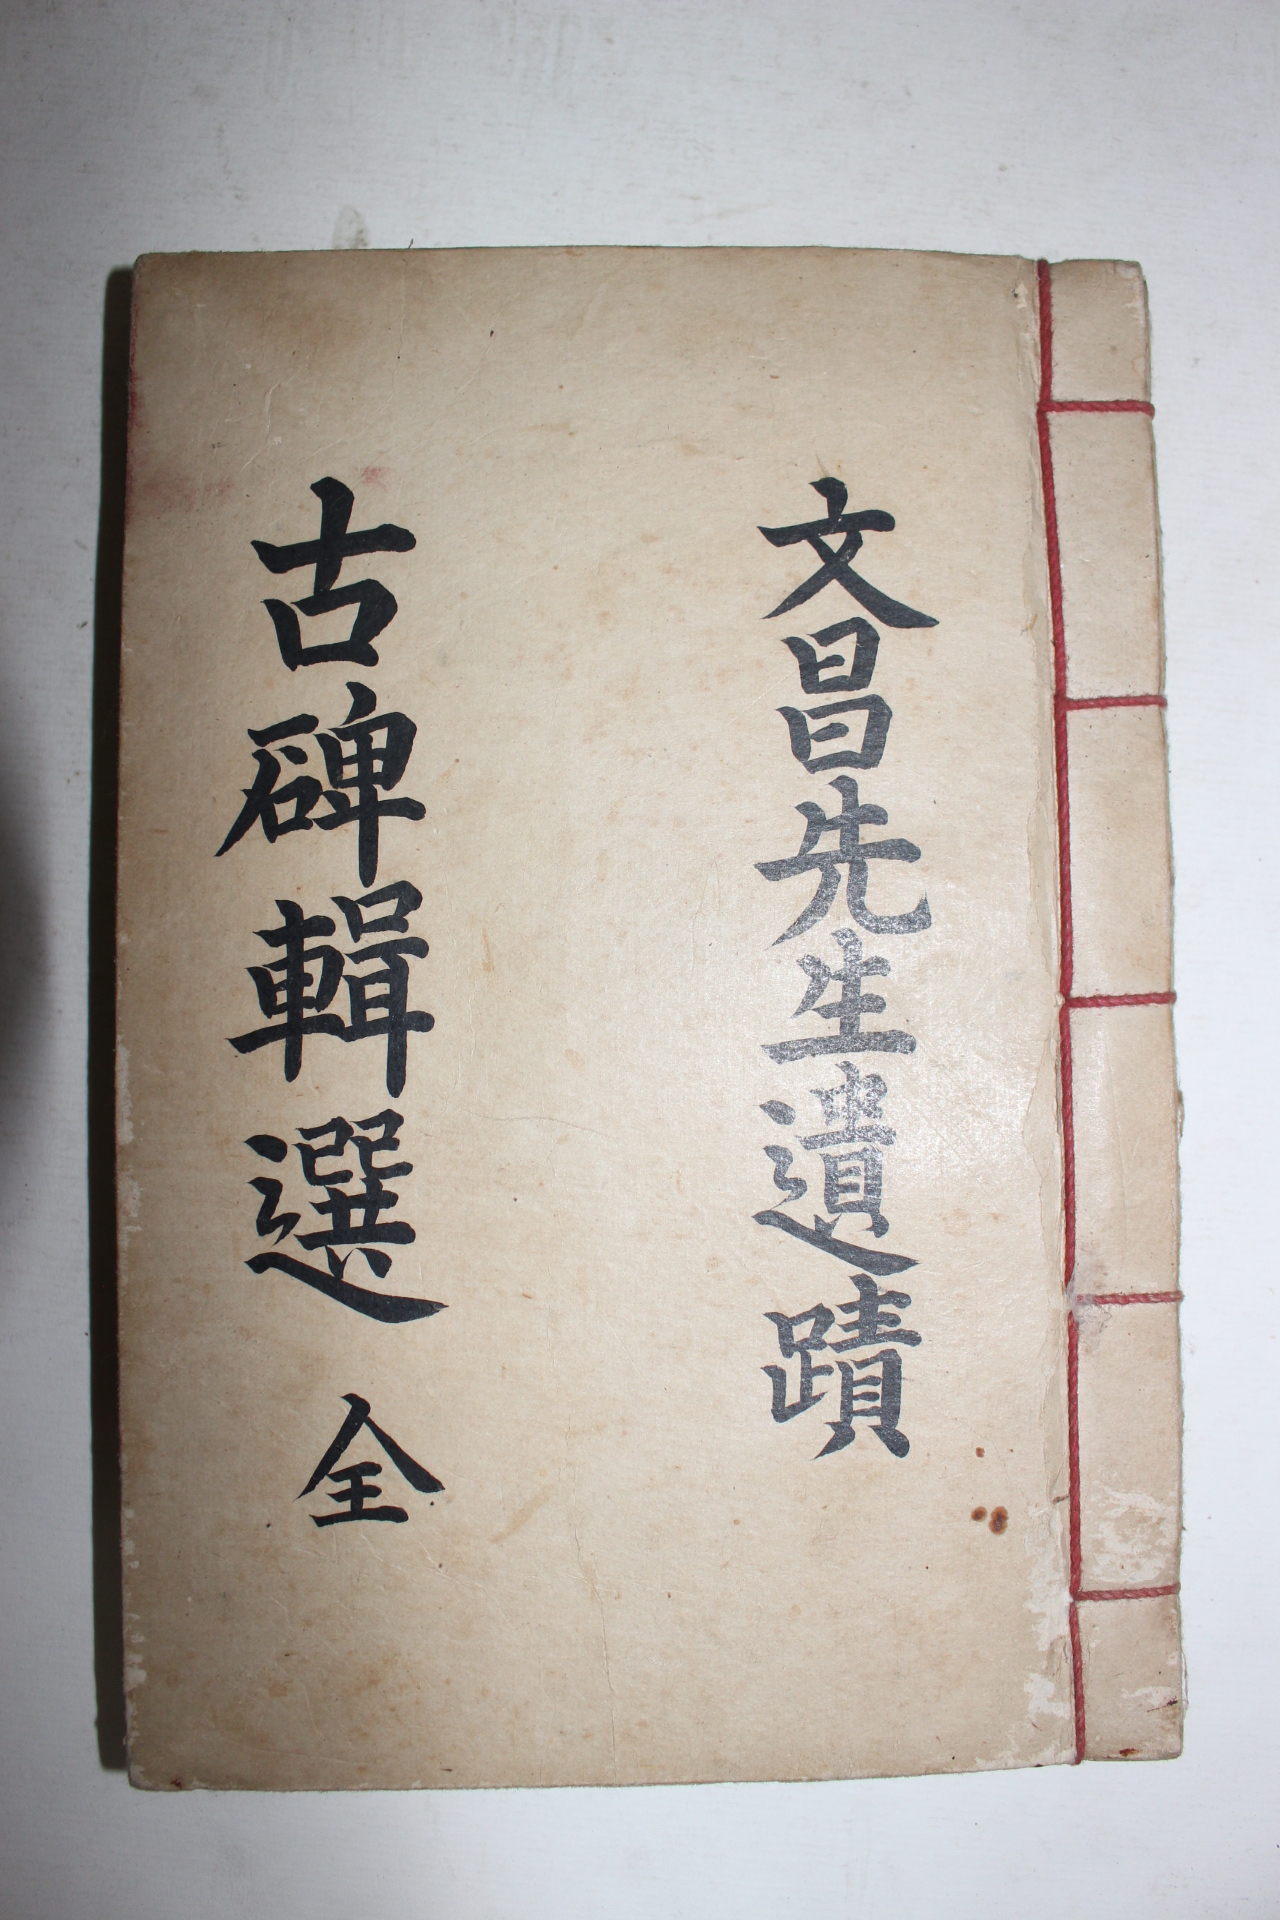 文昌先生遺蹟
古碑輯選 全